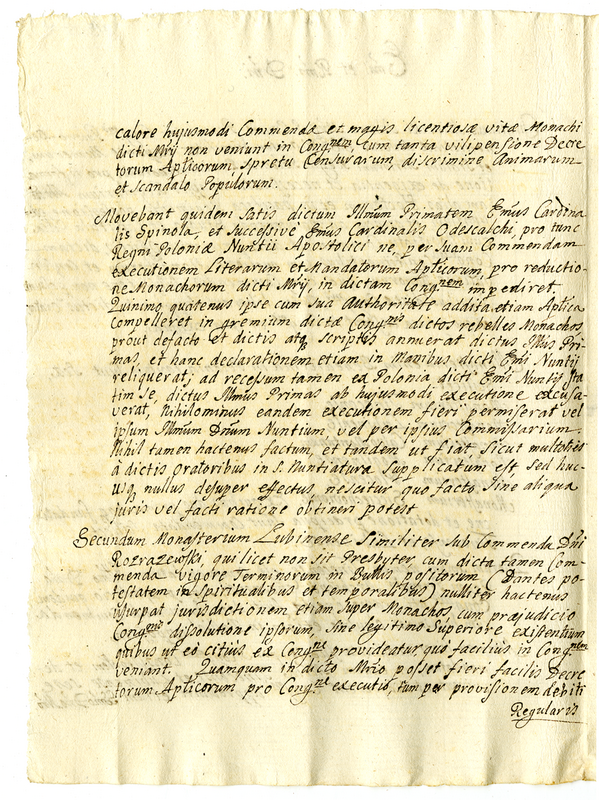 calore hujusmodi Commendæ et magis licentiosæ vitæ Monachi
dicti Mrij non veniunt in Congnem, cum tanta vilipensione Decre
torum Aplicorum, spretu Censurarum, discrimine Animarum
et scandalo Populorum.
Movebant quidem satis dictum Illmum Primatem Emus Cardina
lis Spinola, et successive Emus Cardinalis Odescalchi, pro tunc
Regni Poloniæ Nuntii Apostolici ne, per suam Commendam
executionem Literarum et Mandatorum Aplicorum, pro reductio-
ne Monachorum dicti Mrij, in dictam Congnem impediret.
Quinimo quatenus ipse cum sua authoritate addita etiam Aplica
compelleret in gremium dictæ Congnis dictos rebelles Monachos
prout defacto et dictis atq scriptis annuerat dictus Illmis Pri-
mas, et hanc declarationem etiam in manibus dicti Emi Nuntij
reliquerat; ad recessum tamen ex Polonia dicti Emi Nuntij sta
tim se, dictus Illmus Primas ab hujusmodi executione excusa-
verat, Nihilominus eandem executionem fieri permiserat vel
ipsum Illmum Dnum Nuntium, vel per ipsius Commissarium.
Nihil tamen hactenus factum, et tandem ut fiat, sicut multoties
à dictis Oratoribus in S. Nuntiatura supplicatum est, sed huc-
usq nullus desuper effectus, nescitur quo facto sine aliqua
juris vel facti ratione obtineri potest
Secundum Monasterium Lubinense similiter sub Commenda Dni
Rozrazewski, qui licet non sit Presbyter, cum dicta tamen Com-
menda vigore Terminorum in Bullis positorum (Dantes po-
testatem in spiritualibus et temporalibus) nulliter hactenus
usurpat jurisdictionem etiam super Monachos, cum præjudicio
Congnis dissolutione ipsorum, sine legitimo Superiore existentium
quibus ut eo citius ex Congne provideatur, quò facilius in Congnem
veniant. Quamquam in dicto Mrio posset fieri facilis Decre
torum Aplicorum pro Congne executio, tum per provisionem debiti
Regularis